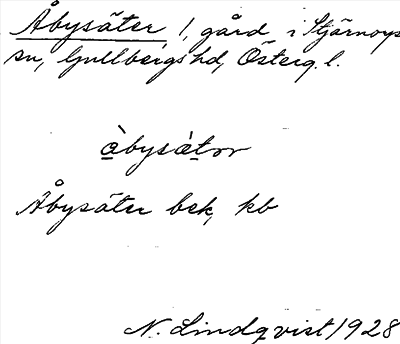 Åbysäter 1, gård i Stjärnorps
sn, Gullbergs hd, Österg. l.
àbysæ̀tər
Åbysäter bek, kb
N. Lindqvist 1928